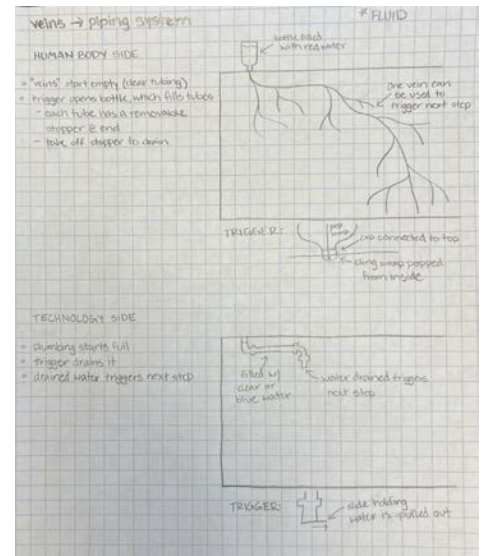 veins → piping system
* FLUID
HUMAN BODY SIDE
"veins" start empty (clear tubing)
trigger opens bottle, which fills tubes
- each tube has a removable
stopper @ end
- take off stopper to drain
bottle filled
with red water
one vein can
be used to
trigger next step
TRIGGER:
cap connected to top
cling wrap popped
from inside
TECHNOLOGY SIDE
plumbing starts full
trigger drains it
drained water triggers next step
filled w/
clear or
blue water
water drained triggers
next step
TRIGGER:
side holding
water is pulled out